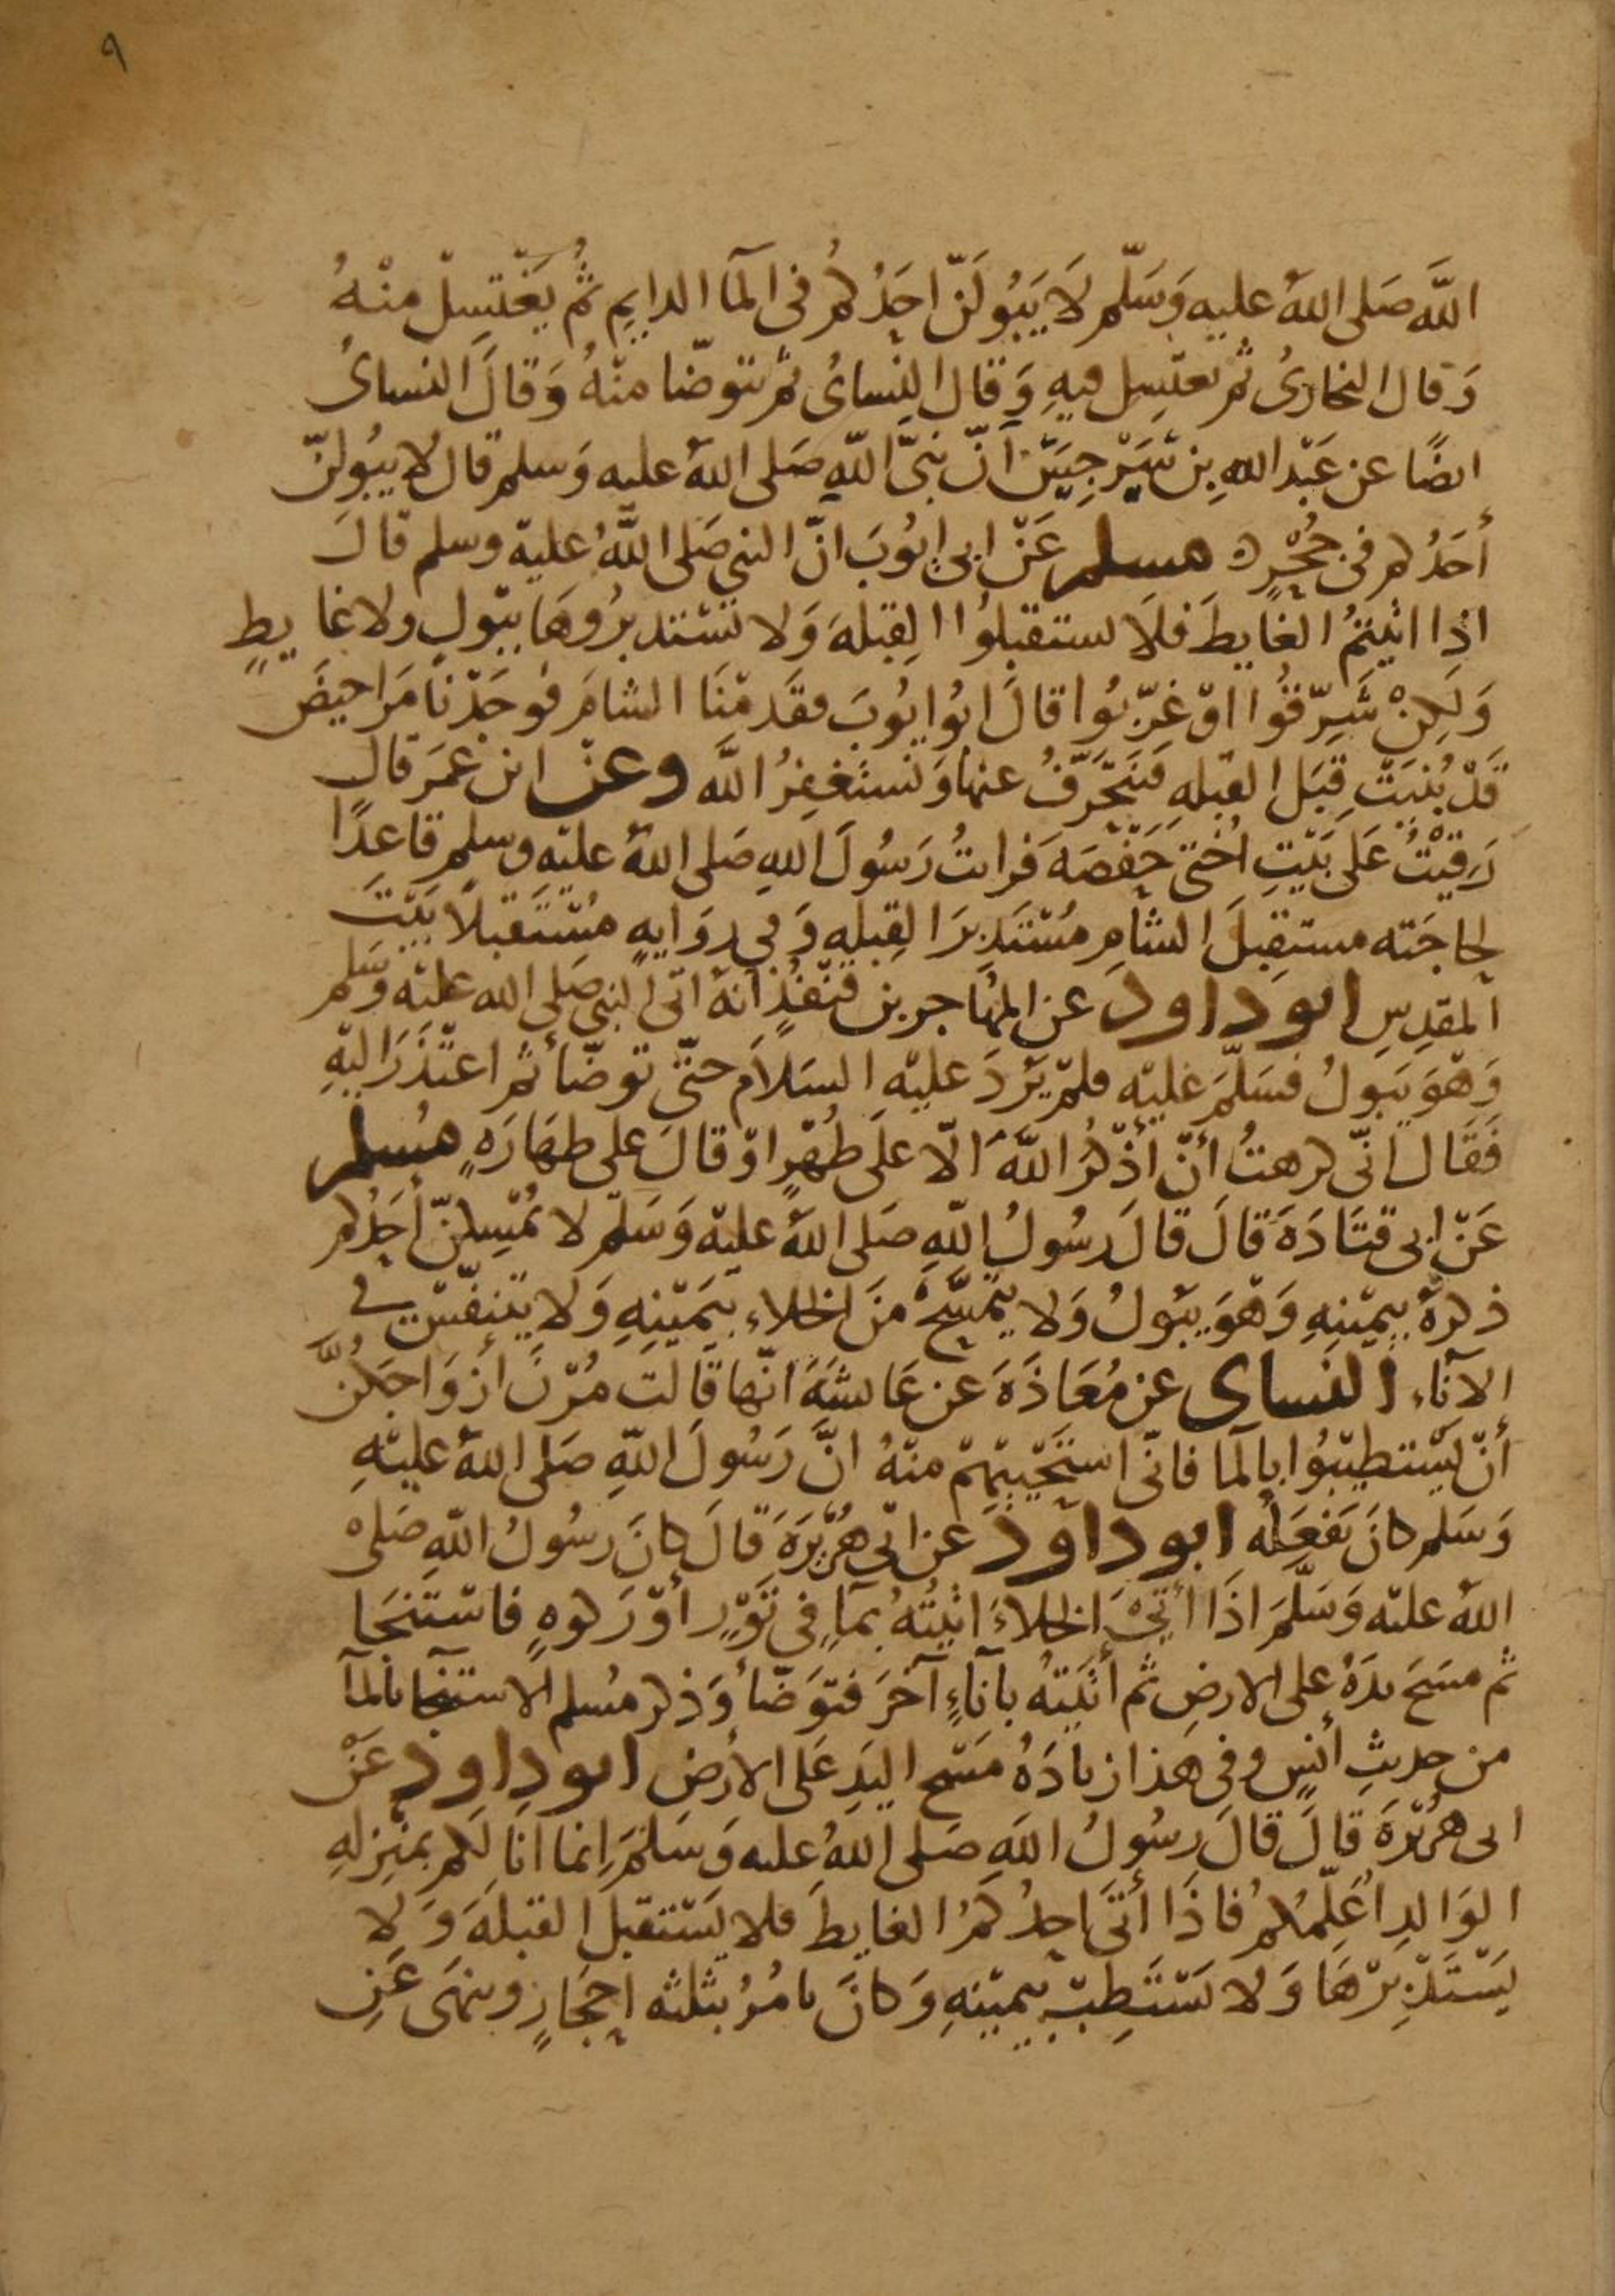 ٩
اللَّه صَلى اللهُ عليهِ وَسَلّم لَا يَبُولَنّ احَدُكم فى المآ الدايمِ ثمُ يَغْتسِلْ منْهُ
وَقال البخارىُ ثم يغتسِل فيهِ وَقال النِسائُ ثم يتوضّا منْهُ وَقالَ النسائُ
ايضًا عن عَبْد اللهِ بن سَرْجِسَ أنّ نبىّ اللهِ صَلى اللهُ عليه وَسلم قال لا يبُولنّ
أحَدُكم فى جُحْرٍ ه مسلم عَنْ ابى ايُوبَ انّ النبي صَلى اللّهُ عليهْ وسلم قالَ
اذا اتيْتمُ الغايطَ فلَا تستقبلوُا القِبلهَ وَلا تسْتدبرُوهَا ببَوْلٍ ولا غايطٍ
وَلكِنْ شَرّقوُا اوْ غرّبُوا قالَ ابُو ايُوبَ فقَدمْنَا الشامَ فوَجَدْنا مَراحيضَ
قَدْ بُنيَتْ قِبَل القبلهِ فنَنحَرَّفُ عنها وَنستغفِرُ اللَّه وعن ابن عمَرَ قال
رَقيْتُ عَلى بَيْتِ اختى حَفْصَهَ فرايتُ رَسُولَ اللهِ صَلى اللهُ عليْه وسلم قاعِدًا
لحاجَته مستقبِلَ الشامِ مُسْتَدبرَ القِبلهِ وَفي روَايهٍ مُسْتَقبلًا بَيْتَ
المقدِسِ ابو داود عن المهُاجر بن قنْفُذٍ انهُ اتَى النبي صَلى الله عليْه وَسَلم
وَهْوَ يَبولُ فسَلّمَ عَليْه فلمْ يَرُدَ عليْهِ السَلاَم حتىّ توضّأ ثم اعتَذَرَ اليْهِ
فَقَال انّى كرهتُ أنْ أذْكُرَ اللَّه الّا علَى طُهْرٍ اوْ قالَ على طهَارَهٍ مسُلم
عَنْ ابى قتَادَهَ قالَ قالَ رسُولُ اللّهِ صَلى اللهُ عليْه وَسَلّم لا يُمْسِكنّ أحَدُكم
ذكرهُ بيمْينهِ وَهْوَ يَبولُ وَلا يَتمسَّحْ منَ الخلاء بيَميْنهِ وَلا يتنفّسْ في
الآناء النسَاى عن مُعَاذَهَ عن عَايشهَ انّها قَالت مُرْنَ أزوَاجَكنَّ
أنْ يَسْتطيْبوُا بالمآ فانّى استَحْييْهمْ منهُ انَّ رَسُولَ اللّهِ صَلى اللهُ عليْهِ
وَسَلم كانَ يَفعَلُه ابو داوَدَ عن ابى هُرَيْرَهَ قالَ كانَ رسُولُ اللهِ صَلى
اللهُ عليْه وَسَلَّمَ اذَا أتى الخلاءَ اتيْتُهُ بمآٍ فى تَوْرٍ أوْ رَكوهٍ فاسْتنجَا
ثم مسَحَ يدَهُ على الارضِ ثم أتَيتهُ بآناءٍ آخَرَ فتوَضّأ وَذكر مسُلم الاستنجا بالمآ
من حديثِ أنسٍ وفى هَذا زيادَهُ مَسْح اليَدِ عَلى الأرْضِ ابو داود عَنْ
ابى هُرَيْرَهَ قالَ قالَ رسُولُ اللهِ صَلى اللهُ عليه وَسَلمَ إنما انا لَكم بمنْزلهِ
الوَالدِ اُعَلّمُكُم فاذَا أتَى احدُكمُ الغايطَ فلا يَسْتقبلَ القبلهَ وَلا
يَسْتَدْبرْهَا وَلا يَسْتَطِبْ بيمْينهِ وَكانَ يامُرُ بثلثه احْجَارٍ وينهَى عَنِ